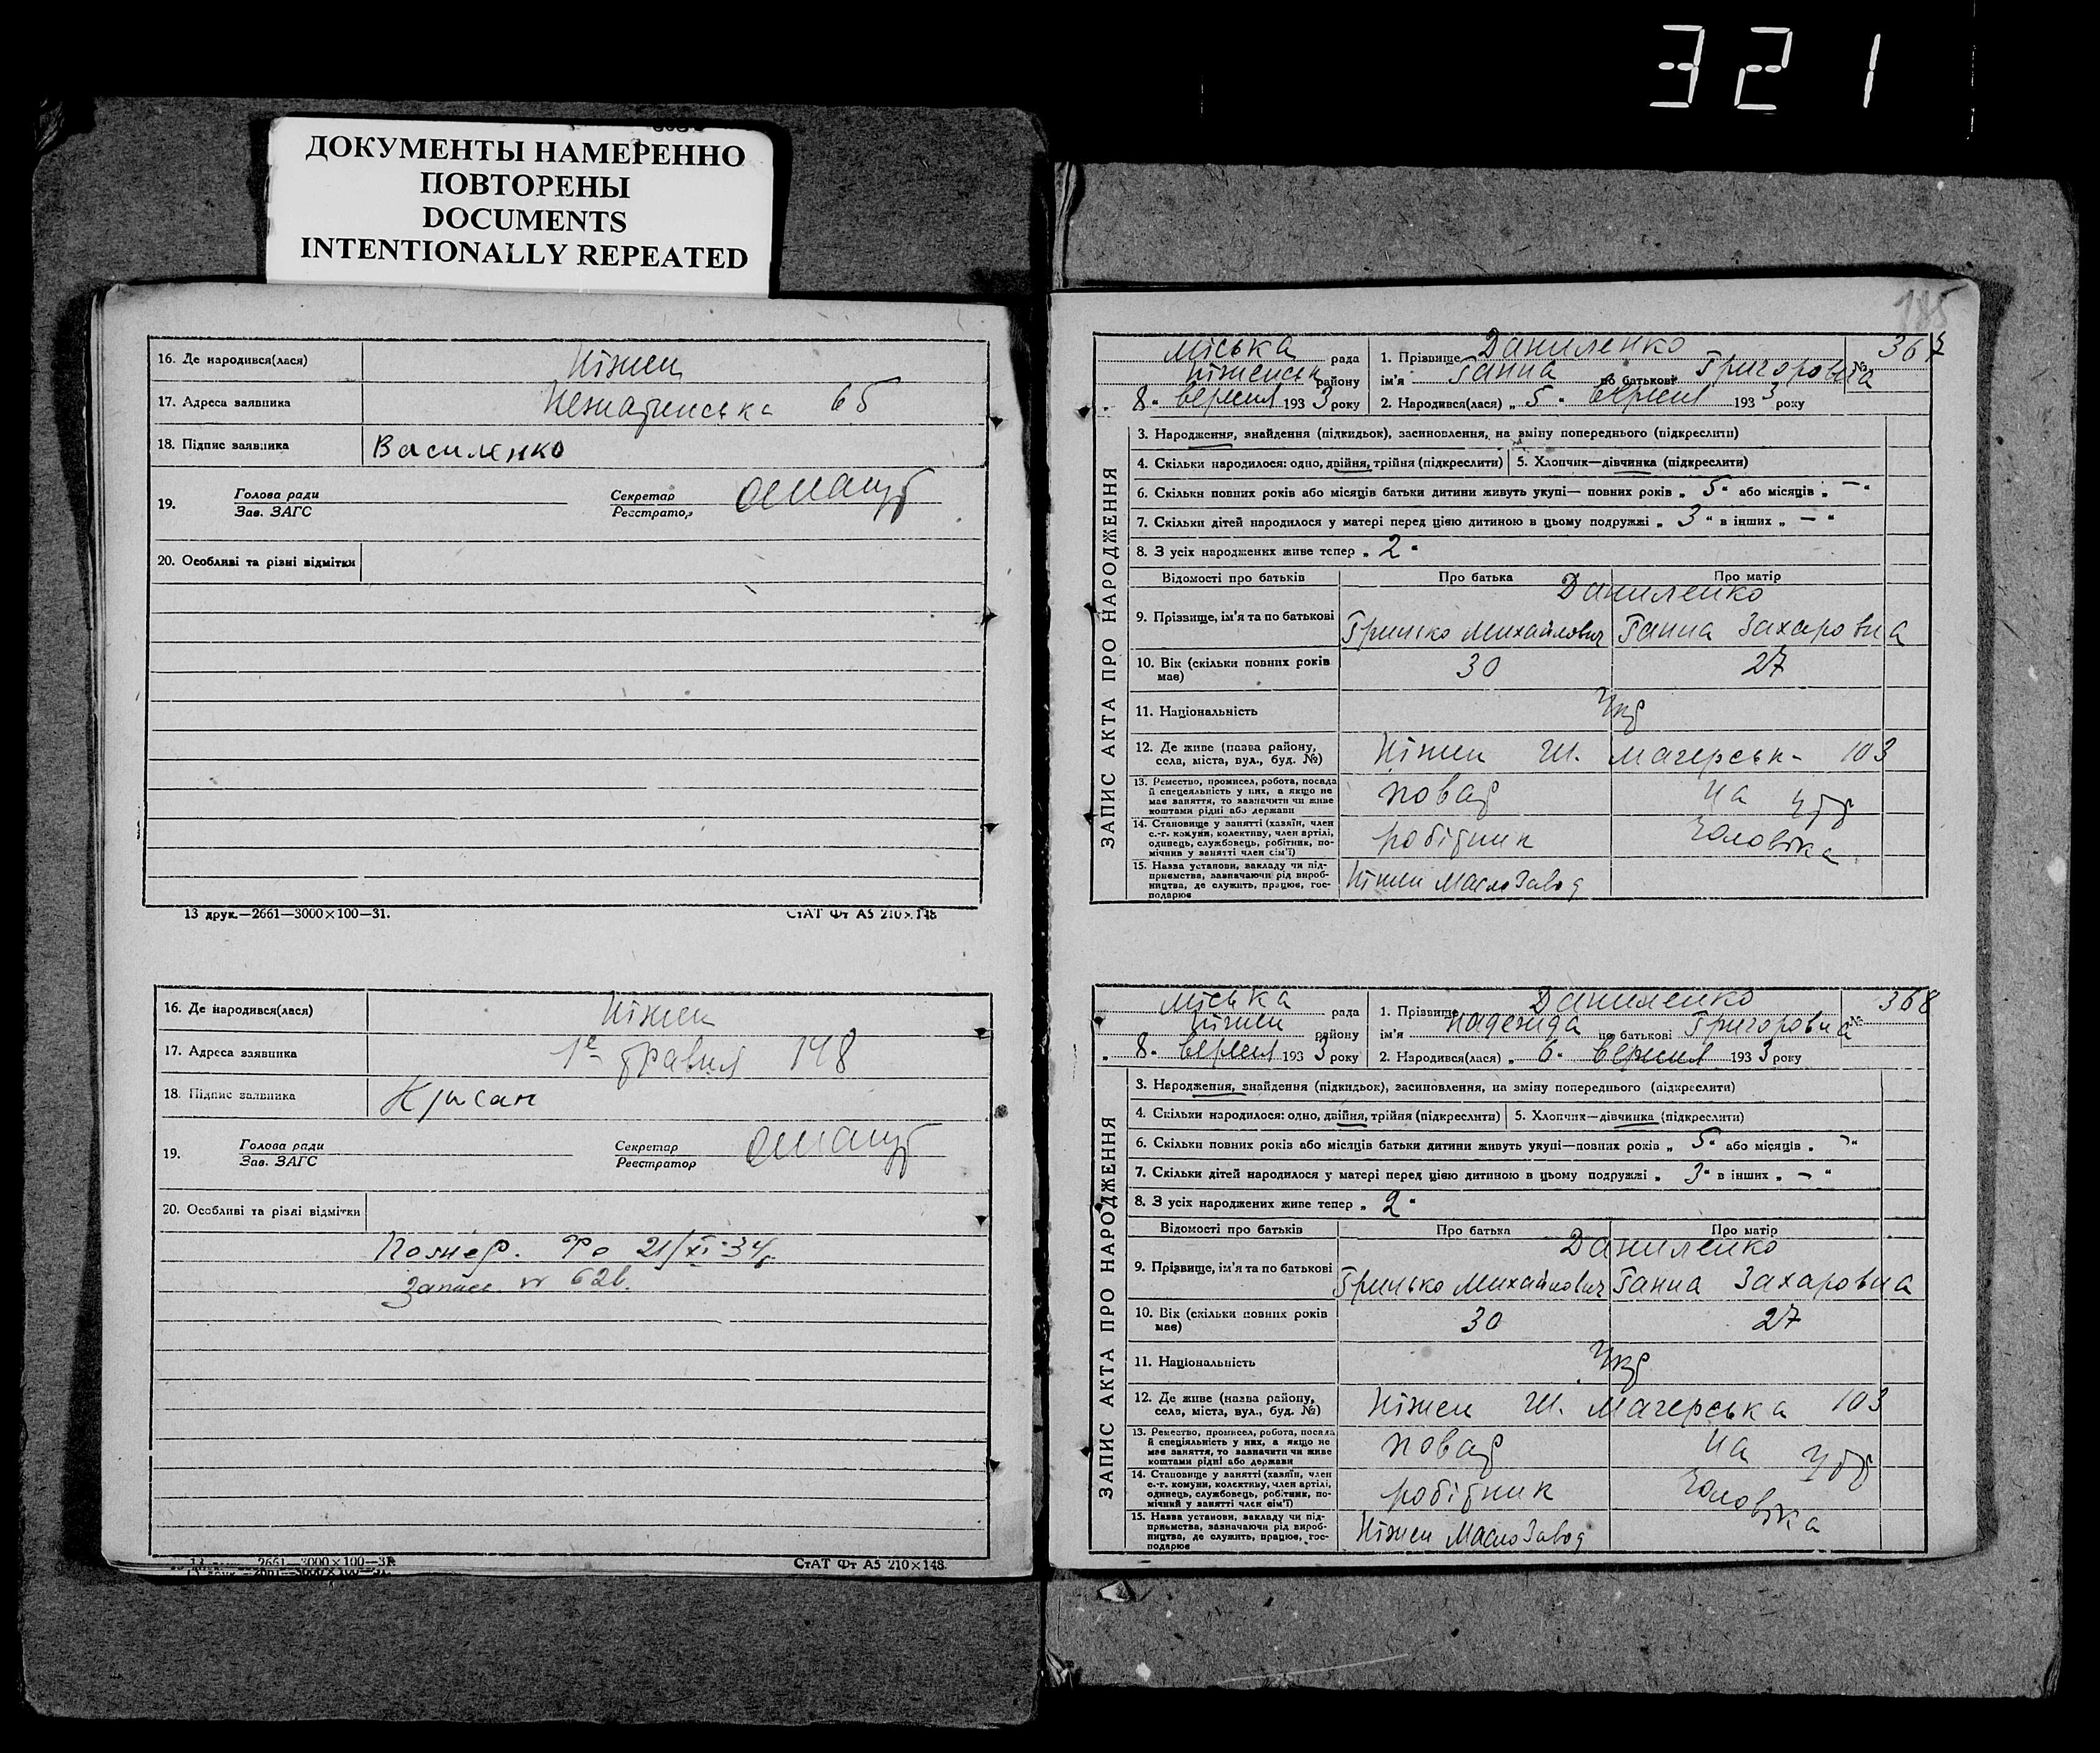 321
ДОКУМЕНТЫ НАМЕРЕННО
ПОВТОРЕНЫ
DOCUMENTS
INTENTIONALLY REPEATED
16. Де народився(лася) Ніжен
17. Адреса заявника 65
18. Підпис заявника Василенко
19. Голова ради Секретар
Зав. ЗАГС Реєстратор
20. Особливі та різні відмітки
13 друк.—2661—3000×100—31. СтАТ Фт А5 210×148
16. Де народився(лася) Ніжен
17. Адреса заявника 1е травня 148
18. Підпис заявника
19. Голова ради Секретар
Зав. ЗАГС Реєстратор
20. Особливі та різні відмітки
Помер. 21/XI-34
2661—3000×100—31. СтАТ Фт А5 210×148
185
ЗАПИС АКТА ПРО НАРОДЖЕННЯ
міська рада 1. Прізвище Даниленко № 367
Ніженськ району ім'я Ганна по батькові Григоровна
„8" вересня 1933 року 2. Народився(лася) „5" вересня 1933 року
3. Народження, знайдення (підкидьок), засиновлення, на зміну попереднього (підкреслити)
4. Скільки народилося: одно, двійня, трійня (підкреслити) 5. Хлопчик—дівчинка (підкреслити)
6. Скільки повних років або місяців батьки дитини живуть укупі— повних років „5" або місяців „—"
7. Скільки дітей народилося у матері перед цією дитиною в цьому подружжі „3" в інших „—"
8. З усіх народжених живе тепер „2"
Відомості про батьків Про батька Про матір
Даниленко
9. Прізвище, ім'я та по батькові Грицько Михайлович Ганна Захаровна
10. Вік (скільки повних років має) 30 27
11. Національність Укр
12. Де живе (назва району, села, міста, вул., буд. №) Ніжен Ш. Магерськ- 103
13. Ремество, промисел, робота, посада й спецеяльність у них, а якщо не має заняття, то зазначити чи живе коштами рідні або держави повар На утр
14. Становище у занятті (хазяїн, член с.-г. комуни, колективу, член артілі, одинець, службовець, робітник, помічник у занятті член сім'ї) робітник чоловіка
15. Назва установи, закладу чи підприємства, зазначаючи рід виробництва, де служить, працює, господарює Ніжен МаслоЗавод
ЗАПИС АКТА ПРО НАРОДЖЕННЯ
міська рада 1. Прізвище Даниленко № 368
Ніжен району ім'я Надежда по батькові Григоровна
„8" вересня 1933 року 2. Народився(лася) „6" вересня 1933 року
3. Народження, знайдення (підкидьок), засиновлення, на зміну попереднього (підкреслити)
4. Скільки народилося: одно, двійня, трійня (підкреслити) 5. Хлопчик—дівчинка (підкреслити)
6. Скільки повних років або місяців батьки дитини живуть укупі—повних років „5" або місяців „—"
7. Скільки дітей народилося у матері перед цією дитиною в цьому подружжі „3" в інших „—"
8. З усіх народжених живе тепер „2"
Відомості про батьків Про батька Про матір
Даниленко
9. Прізвище, ім'я та по батькові Грицько Михайлович Ганна Захаровна
10. Вік (скільки повних років має) 30 27
11. Національність Укр
12. Де живе (назва району, села, міста, вул., буд. №) Ніжен Ш. Магерська 103
13. Ремество, промисел, робота, посада й спеціяльність у них, а якщо не має заняття, то зазначити чи живе коштами рідні або держави повар На утр
14. Становище у занятті (хазяїн, член с.-г. комуни, колективу, член артілі, одинець, службовець, робітник, помічний у занятті член сім'ї) робітник чоловіка
15. Назва установи, закладу чи підприємства, зазначаючи рід виробництва, де служить, працює, господарює Ніжен МаслоЗавод